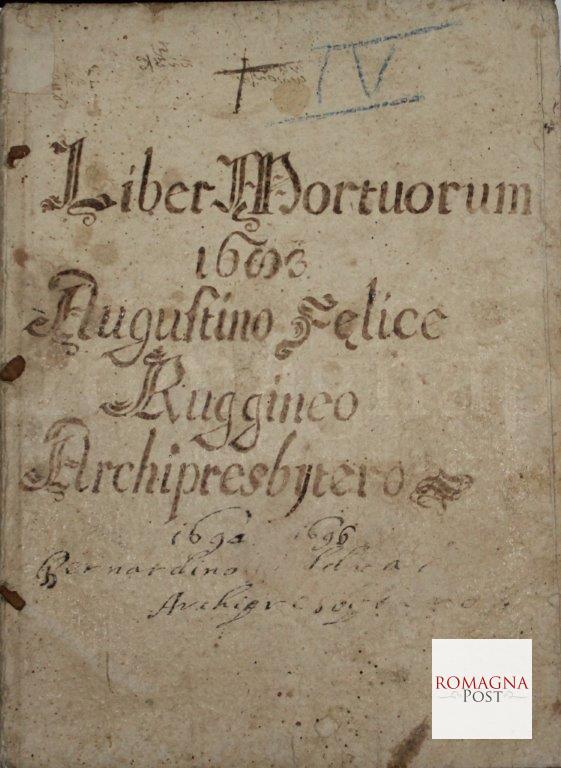 † IV
Liber Mortuorum
Augustino Felice
Ruggineo
Archipresbytero
1690 1696
Bernardino
ROMAGNA
POST